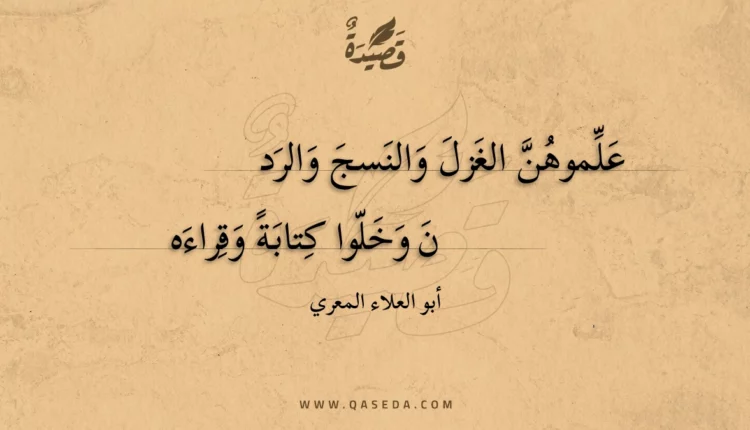 قَصِيْدَةٌ
عَلِّموهُنَّ الغَزلَ وَالنَسجَ وَالرَد
نَ وَخَلّوا كِتابَةً وَقِراءَه
أبو العلاء المعري
WWW.QASEDA.COM